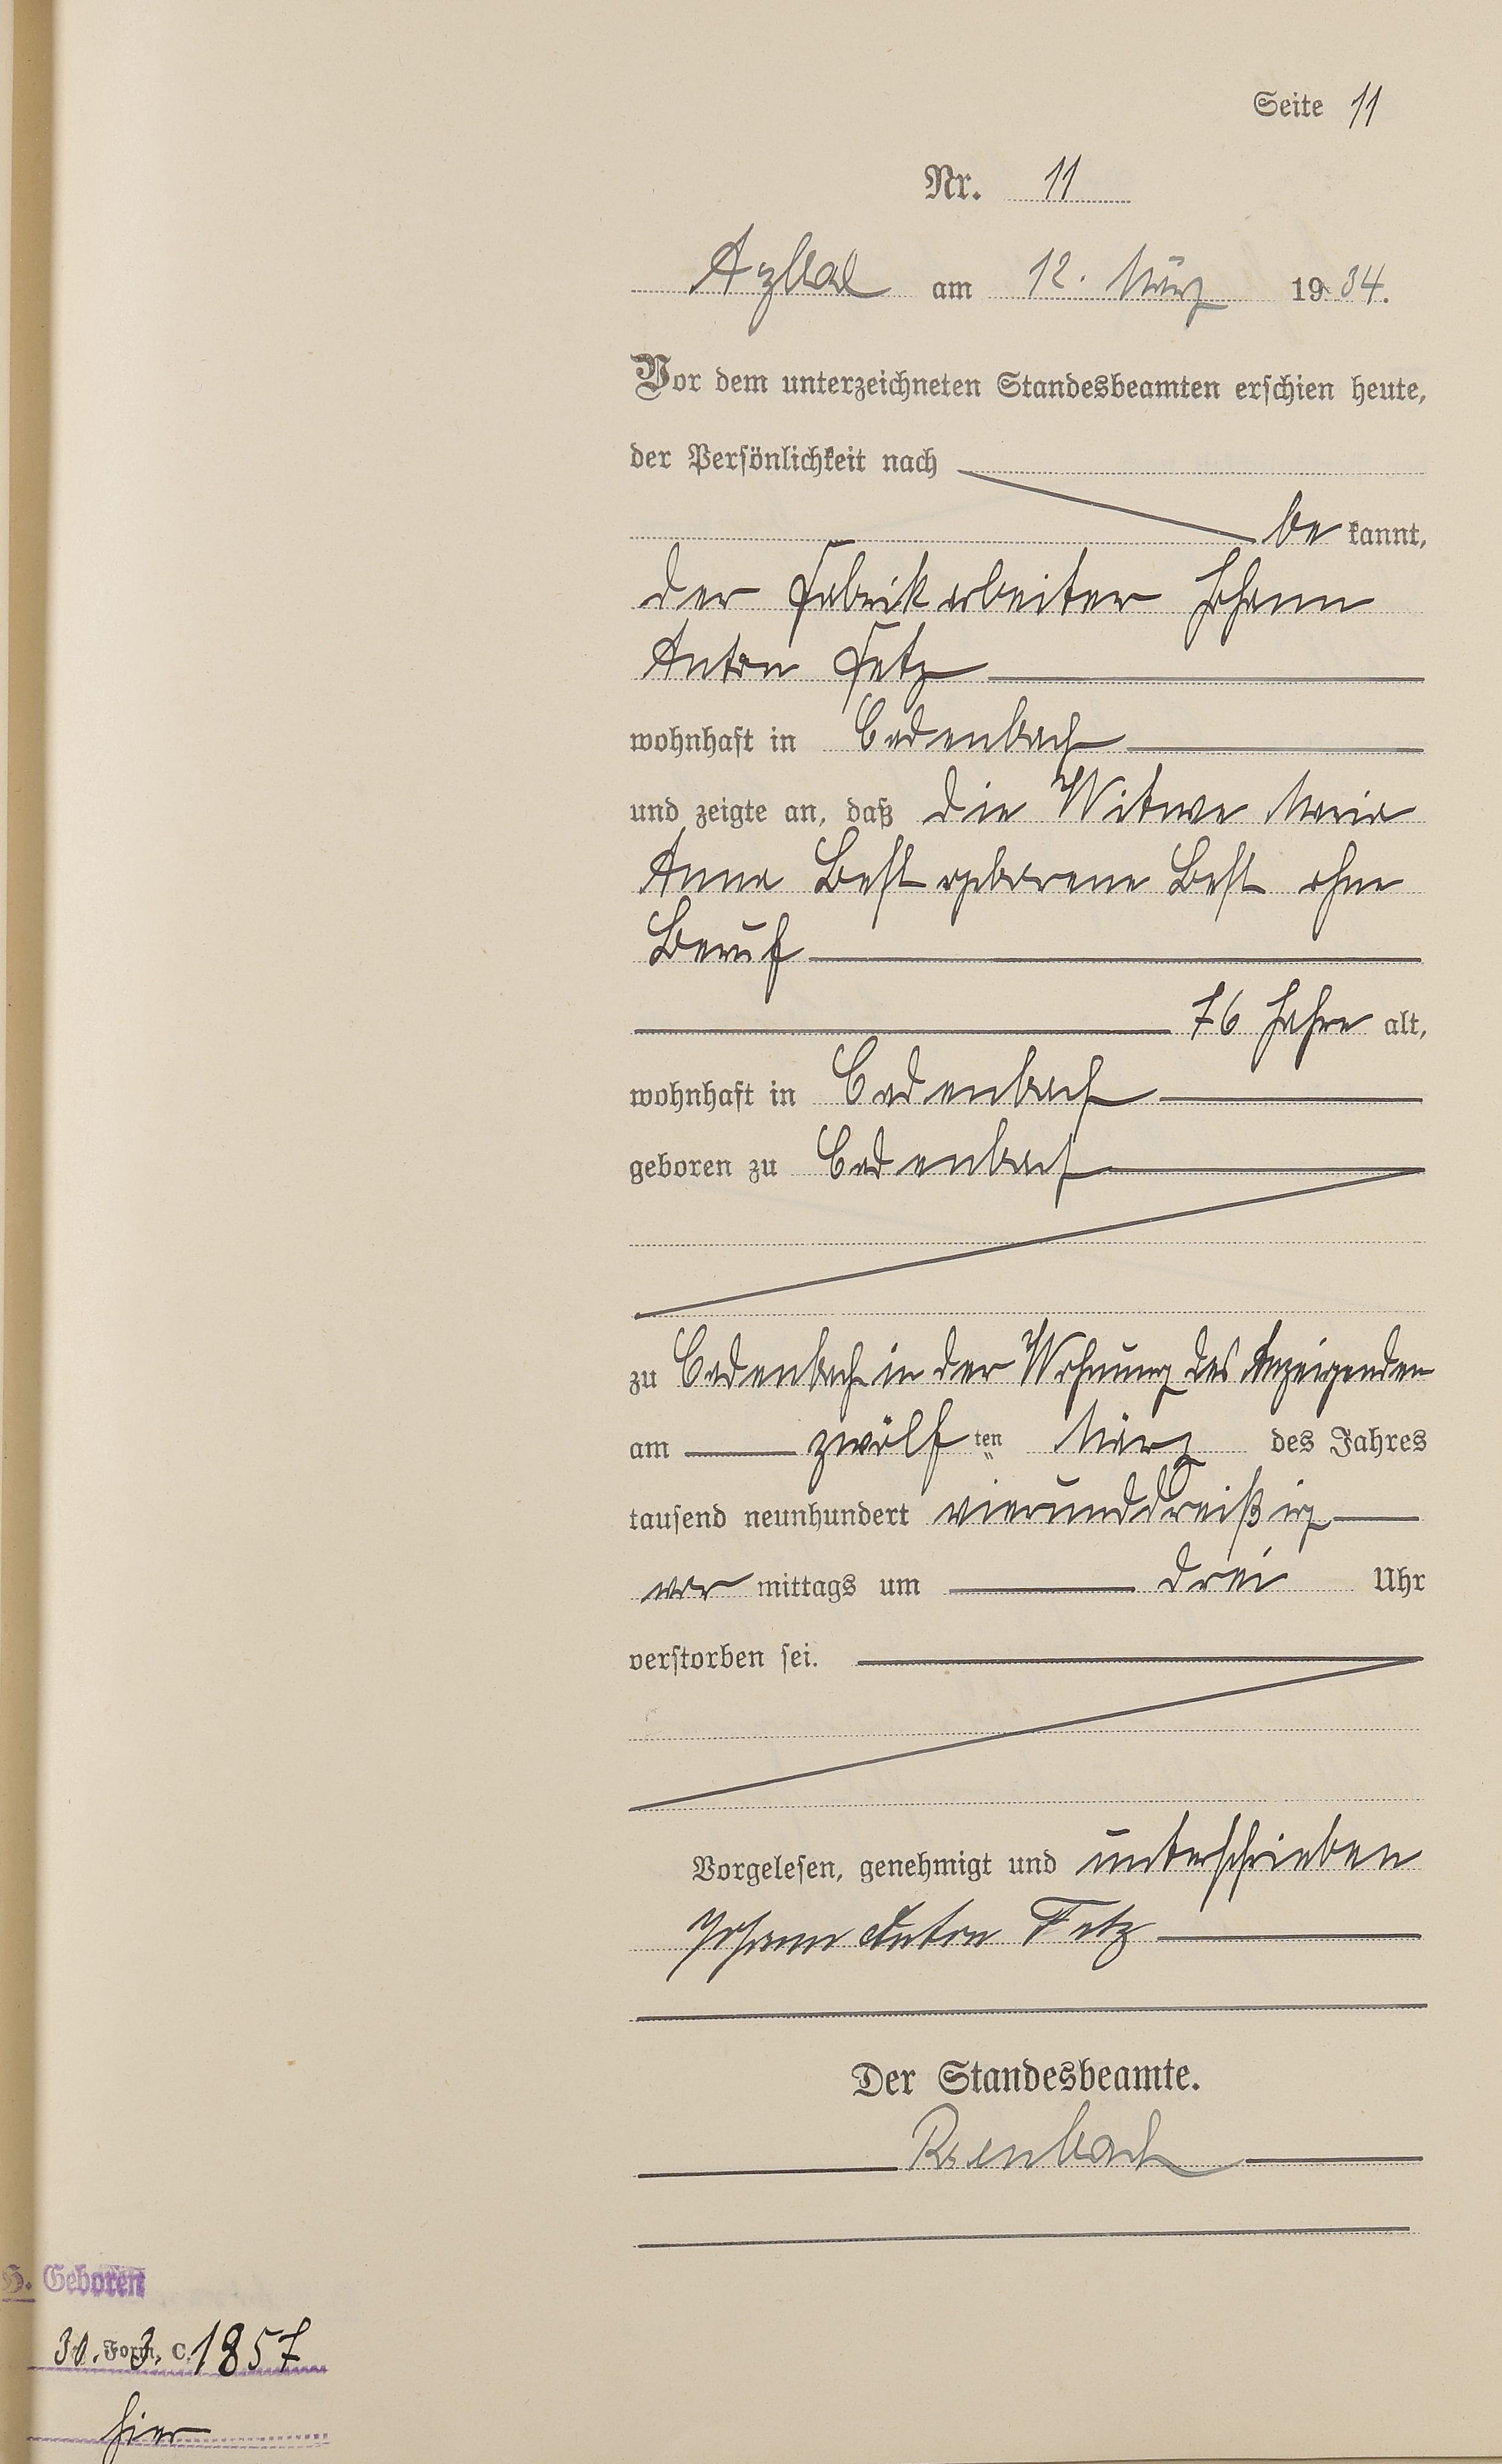 Seite 11
Nr. 11
Arzbach am 12. März 1934.
Vor dem unterzeichneten Standesbeamten erschien heute,
der Persönlichkeit nach
be kannt,
der Fabrikarbeiter Johann
Anton Fetz
wohnhaft in Cadenbach
und zeigte an, daß die Witwe Maria
Anna Best geborene Best ohne
Beruf
76 Jahre alt,
wohnhaft in Cadenbach
geboren zu Cadenbach
zu Cadenbach in der Wohnung des Anzeigenden
am zwölf ten März des Jahres
tausend neunhundert vierunddreißig
vor mittags um drei Uhr
verstorben sei.
Vorgelesen, genehmigt und unterschrieben
Johann Anton Fetz
Der Standesbeamte.
H. Geboren
Form. C.
1857
hier